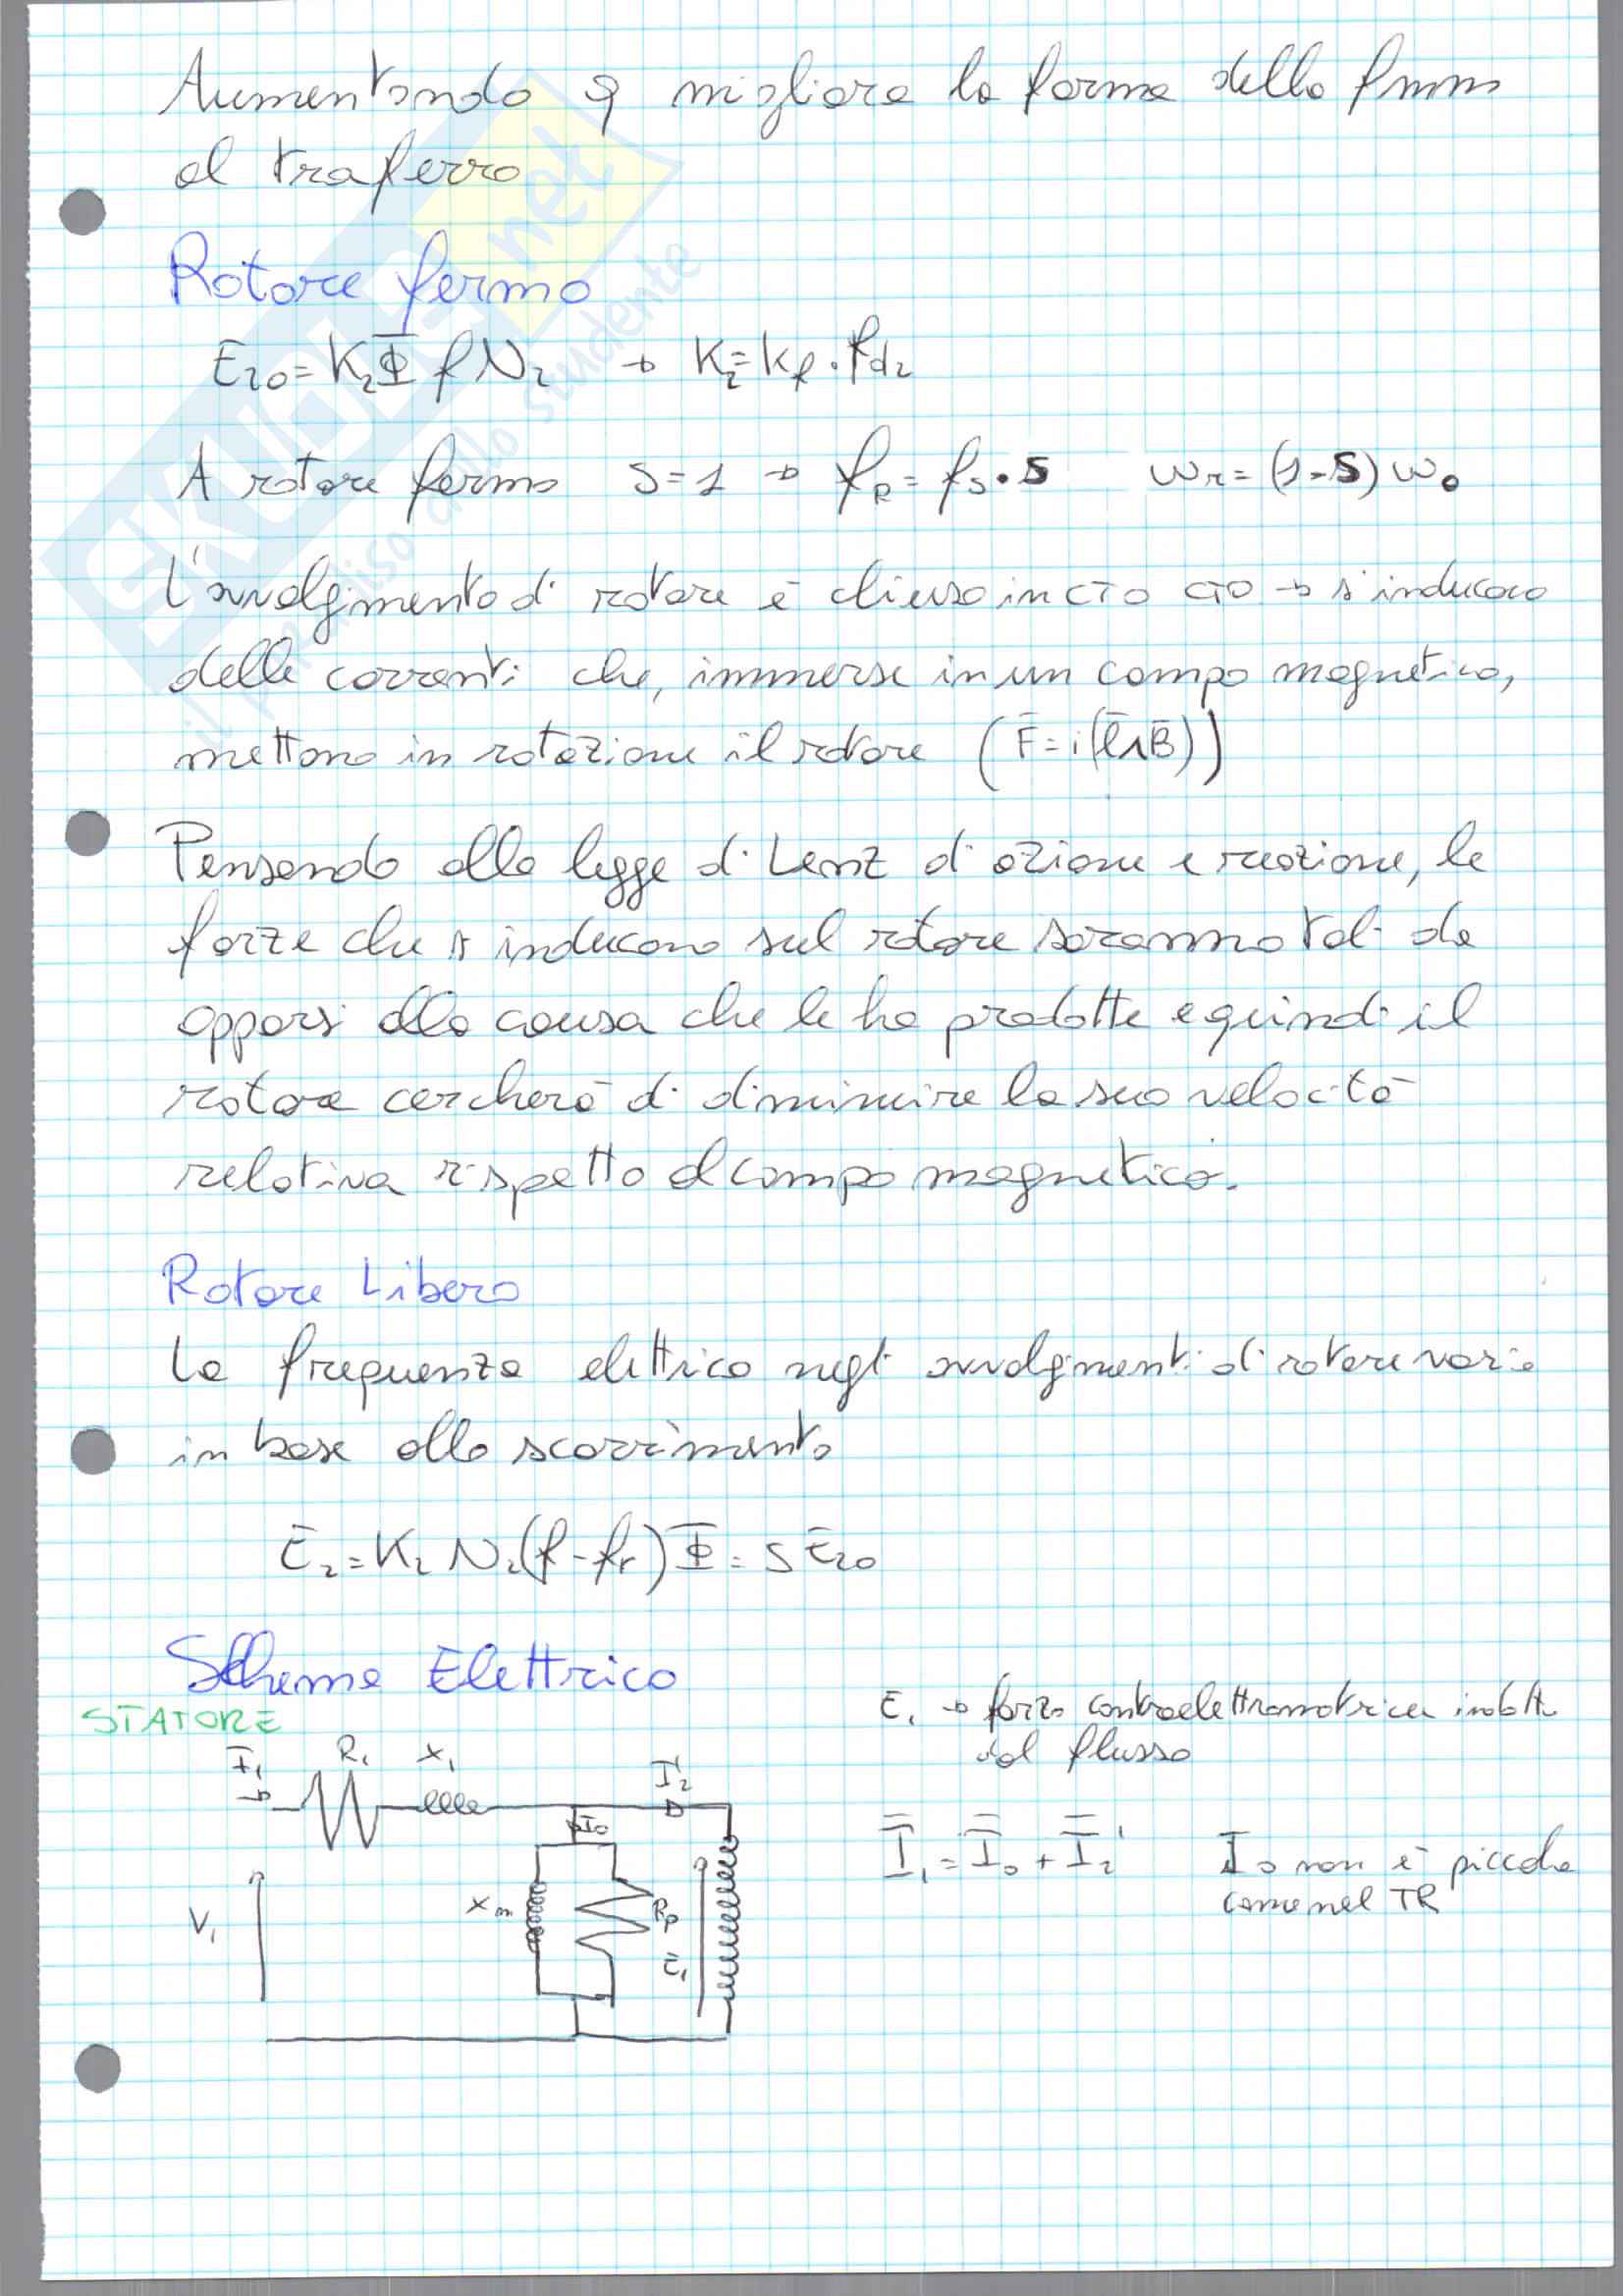 Aumentando q migliora la forma della fmm
al traferro
Rotore fermo
Ē₂₀=K₂Φ̄ f N₂ → K₂=Kf·fd₂
A rotore fermo s=1 → fR=fs·s ωr=(1-s)ω₀
L'avvolgimento di rotore è chiuso in cto cto → s'inducono
delle correnti che, immerse in un campo magnetico,
mettono in rotazione il rotore (F̄=i(l̄∧B̄))
Pensando alla legge di Lenz di azione e reazione, le
forze che si inducono sul rotore saranno tali da
opporsi alla causa che le ha prodotte e quindi il
rotore cercherà di diminuire la sua velocità
relativa rispetto al campo magnetico.
Rotore Libero
La frequenza elettrica negli avvolgimenti di rotore varia
in base allo scorrimento
Ē₂=K₂ N₂(f-fr)Φ̄= S Ē₂₀
Schema Elettrico
STATORE
E₁ → forza controelettromotrice indotta
dal flusso
Ī₁ R₁ X₁ I'₂
I₀
Ī₁=Ī₀+Ī₂' I₀ non è piccola
come nel TR
V₁ Xm Rp Ē₁
SKUOLA.net
il paradiso dello studente